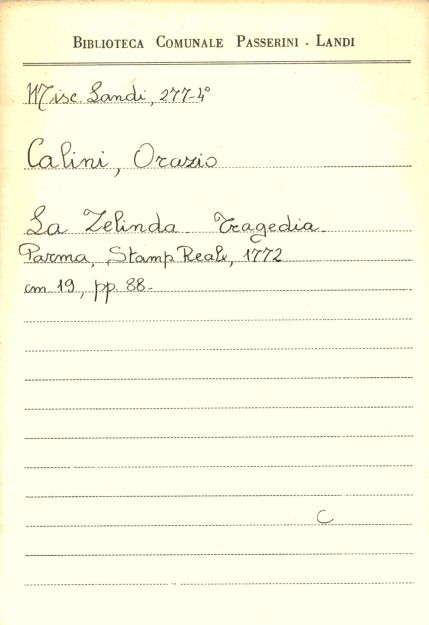 BIBLIOTECA COMUNALE PASSERINI - LANDI
Misc. Landi, 277-4°
Calini, Orazio
La Zelinda Tragedia.
Parma, Stamp. Reale, 1772
cm 19, pp. 88-
C